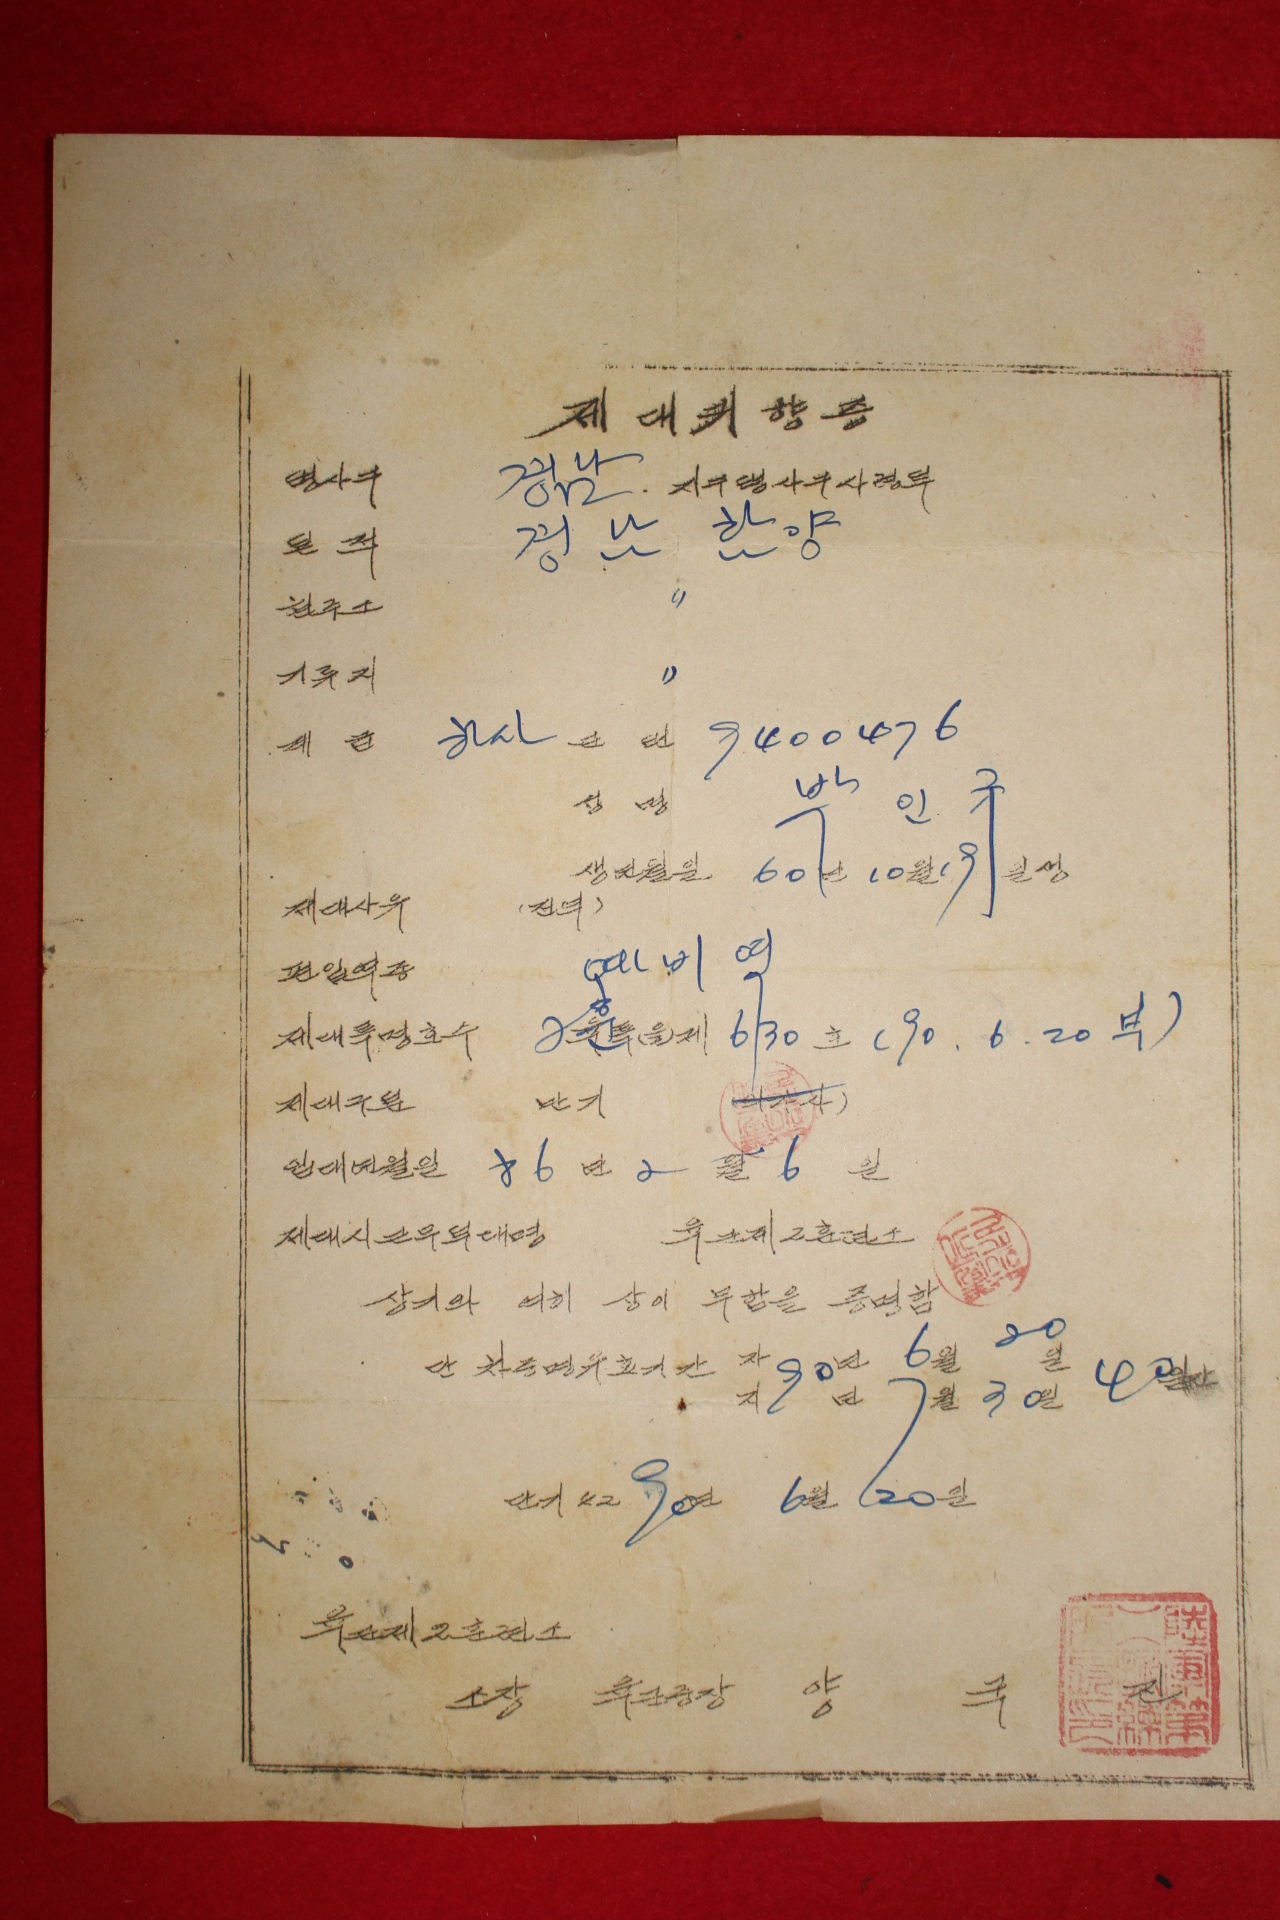 제대귀향증
병사구 경남 지구병사구사령부
본적 경남 함양
원주소 〃
기류지 〃
계급 하사 군번 9400476
성명 박인국
생년월일 60년 10월 19일생
제대사유 (전역)
편입역종 예비역
제대특명호수 2훈 특(을)제 6130호 (90. 6. 20 부)
제대구분 만기
입대년월일 86년 2월 6일
제대시근무부대명 육군제2훈련소
상기와 여히 상이 무함을 증명함
단 차증명유효기간 자 90년 6월 20일
지 90년 7월 30일 40일간
단기 42 90년 6월 20일
육군제2훈련소
소장 육군중장 양 국 진